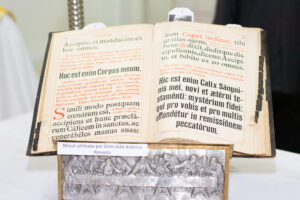 Accípite, et manducáte ex
hoc omnes.
Hoc est enim Corpus meum.
Símili modo postquam
cœnátum est,
accípiens et hunc præclá-
rum Cálicem in sanctas, ac
venerábiles manus suas:
item
Caput inclínat,
tibi
grátias agens,
bene dixit, dedítque dis-
cípulis suis, dicens: Accípi-
te, et bíbite ex eo omnes.
Hic est enim Calix Sángui-
nis mei, novi et ætérni te-
staménti: mystérium fídei:
qui pro vobis et pro multis
effundétur in remissiónem
peccatórum.
Missal utilizado por Dom João Antônio
Pimenta